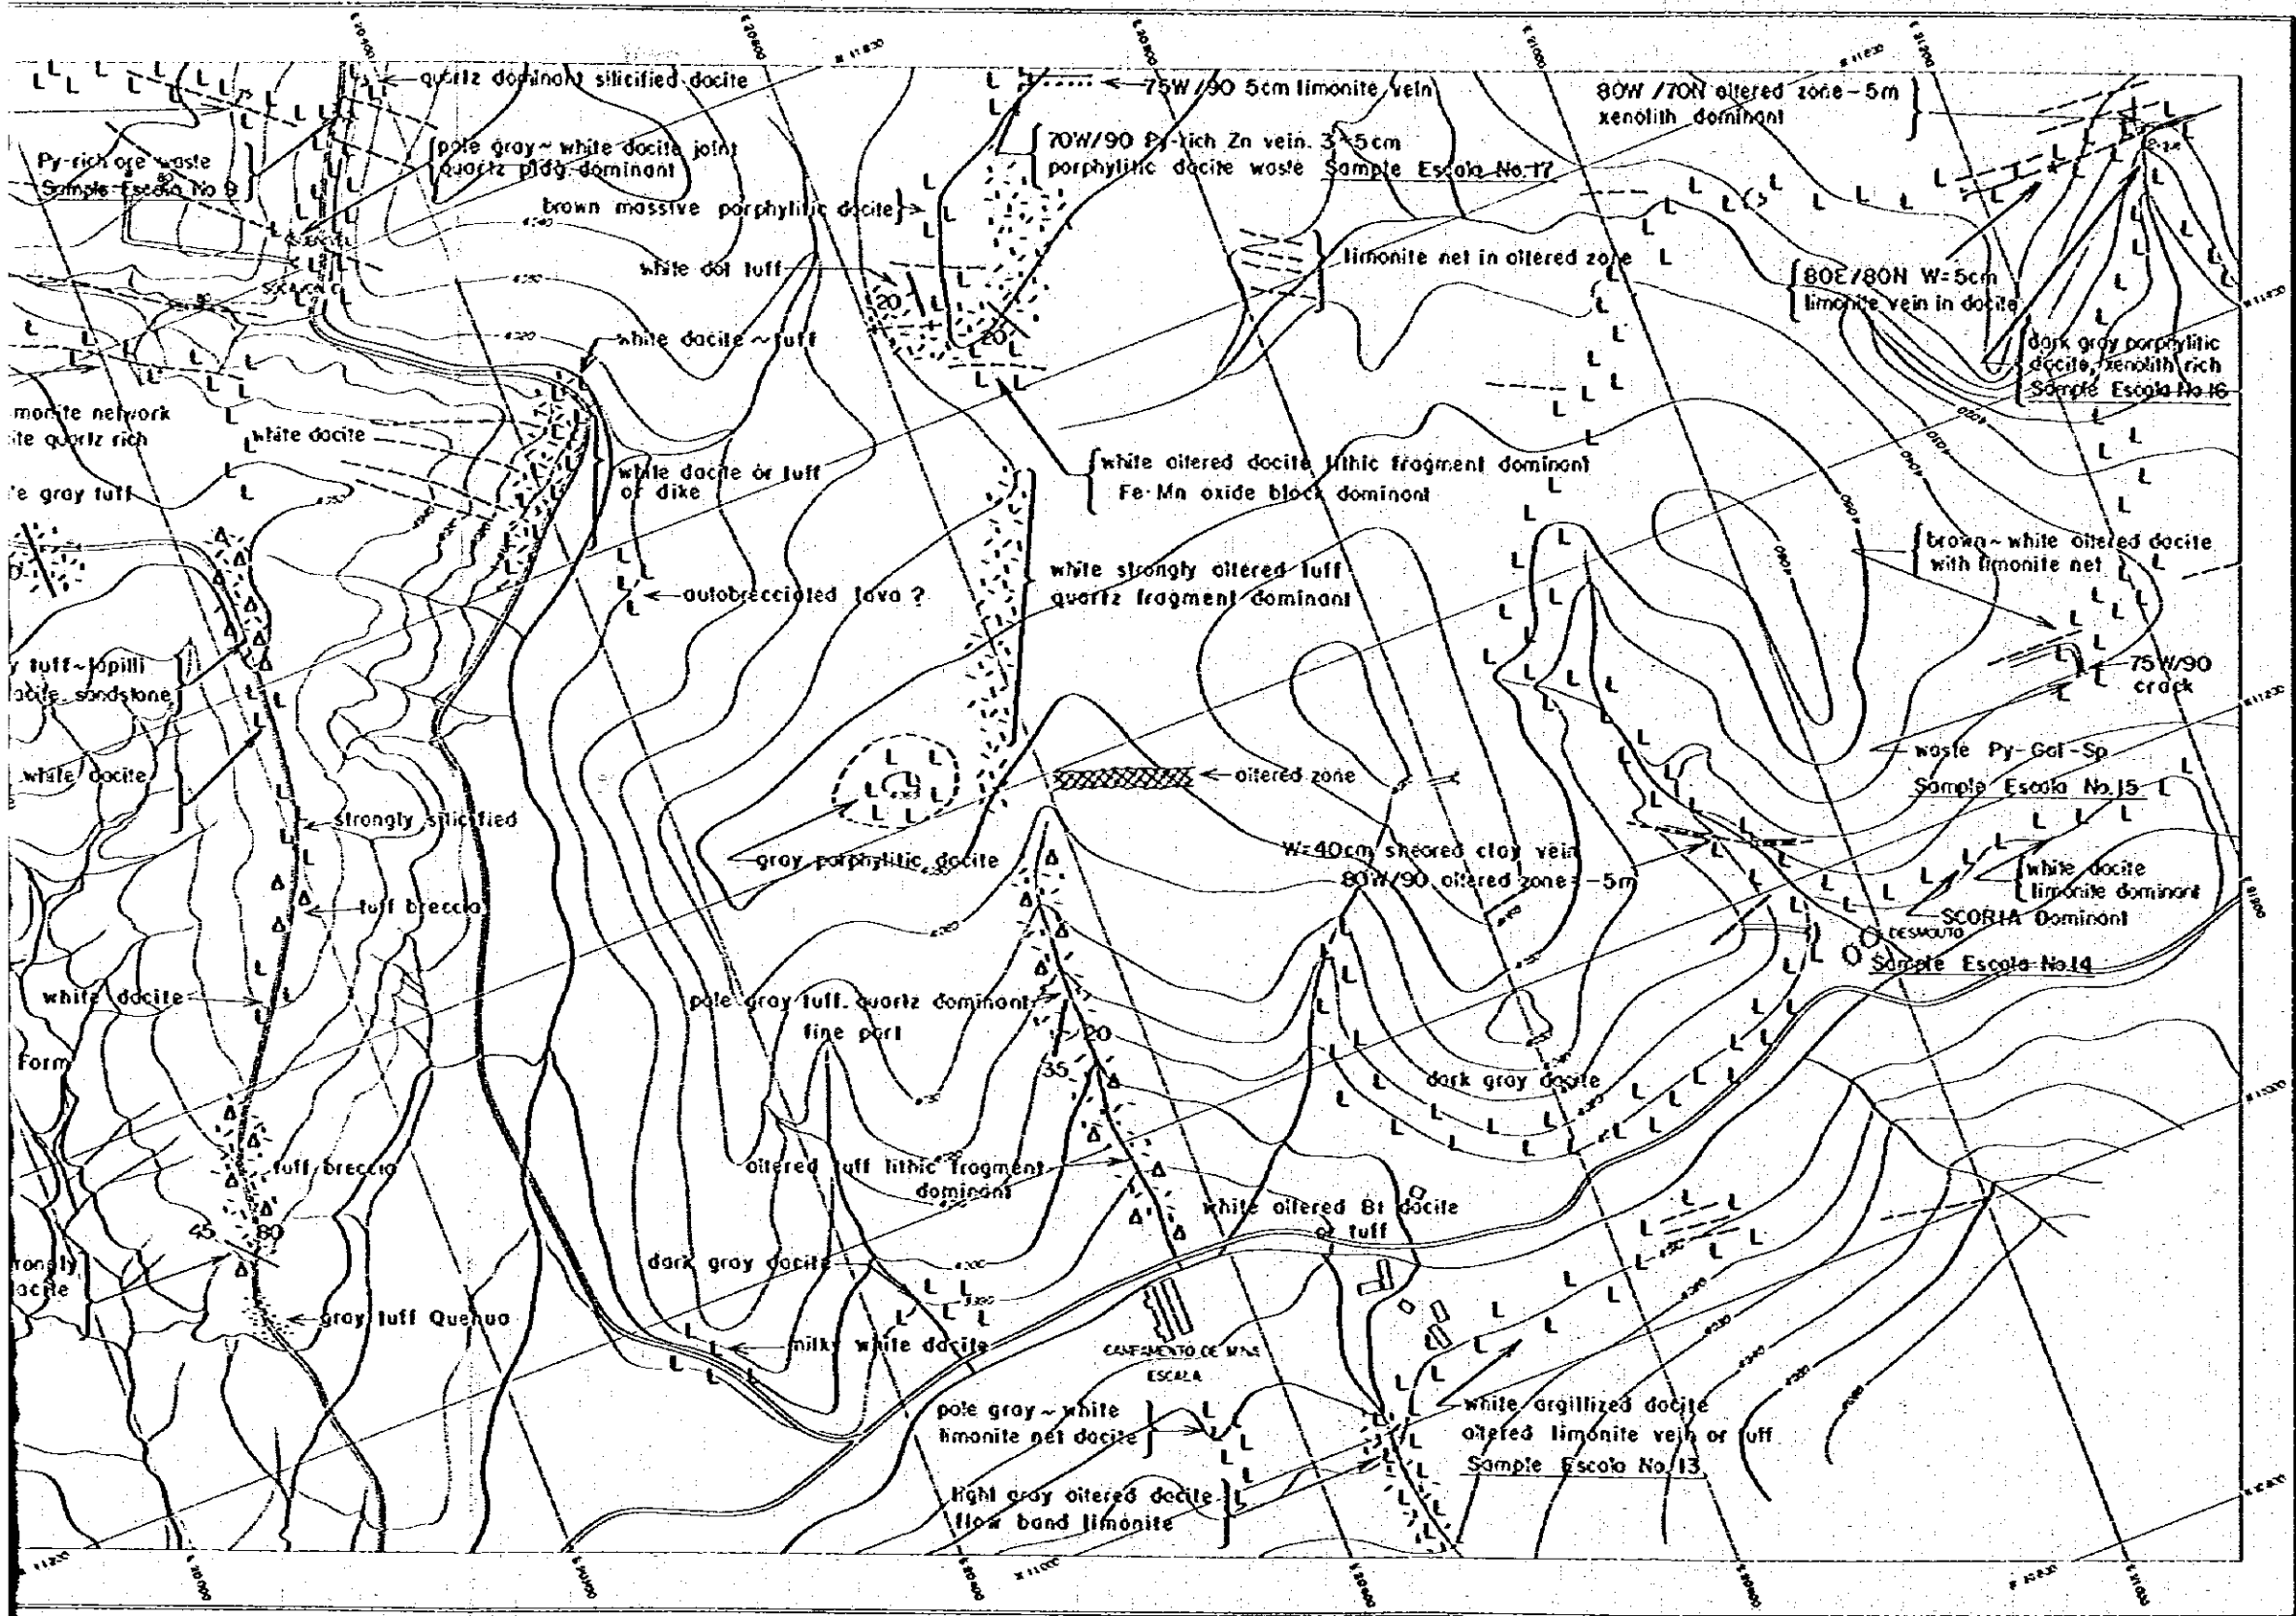 E 20400
E 20800
E 21000
E 21200
quartz dominant silicified dacite
75W/90 5cm limonite vein
80W /70N altered zone - 5m
xenolith dominant
Py-rich ore waste
Sample Escala No 9
pale gray ~ white dacite joint
quartz plag. dominant
70W/90 Py-rich Zn vein. 3~5cm
porphylitic dacite waste Sample Escala No. 17
brown massive porphylitic dacite
white dot tuff
20
20
limonite net in altered zone
80E/80N W=5cm
limonite vein in dacite
dark gray porphylitic
dacite, xenolith rich
Sample Escala No. 16
4320
white dacite ~ tuff
monite network
ite quartz rich
white dacite
white dacite or tuff
or dike
white altered dacite lithic fragment dominant
Fe·Mn oxide block dominant
e gray tuff
4020
4040
4060
4060
brown ~ white altered dacite
with limonite net
white strongly altered tuff
quartz fragment dominant
autobrecciated lava ?
y tuff ~ lapilli
acite sandstone
75W/90
crack
white dacite
waste Py-Gal-Sp
Sample Escala No. 15
altered zone
strongly silicified
gray porphylitic dacite
W=40cm sheared clay vein
80W/90 altered zone = -5m
white dacite
limonite dominant
SCORIA Dominant
tuff breccia
DESMOUTO
Sample Escala No. 14
white dacite
pale gray tuff. quartz dominant
fine part
20
35
Form
dark gray dacite
tuff breccia
altered tuff lithic fragment
dominant
white altered Bt dacite
or tuff
45
80
rongly
acite
dark gray dacite
4300
gray tuff Quehua
milky white dacite
CAMPAMENTO DE MINA
ESCALA
pale gray ~ white
limonite net dacite
white argillized dacite
altered limonite vein or tuff
Sample Escala No. 13
light gray altered dacite
flow band limonite
N 11200
E 20000
E 20400
N 11000
E 20600
E 20800
N 10800
E 21000